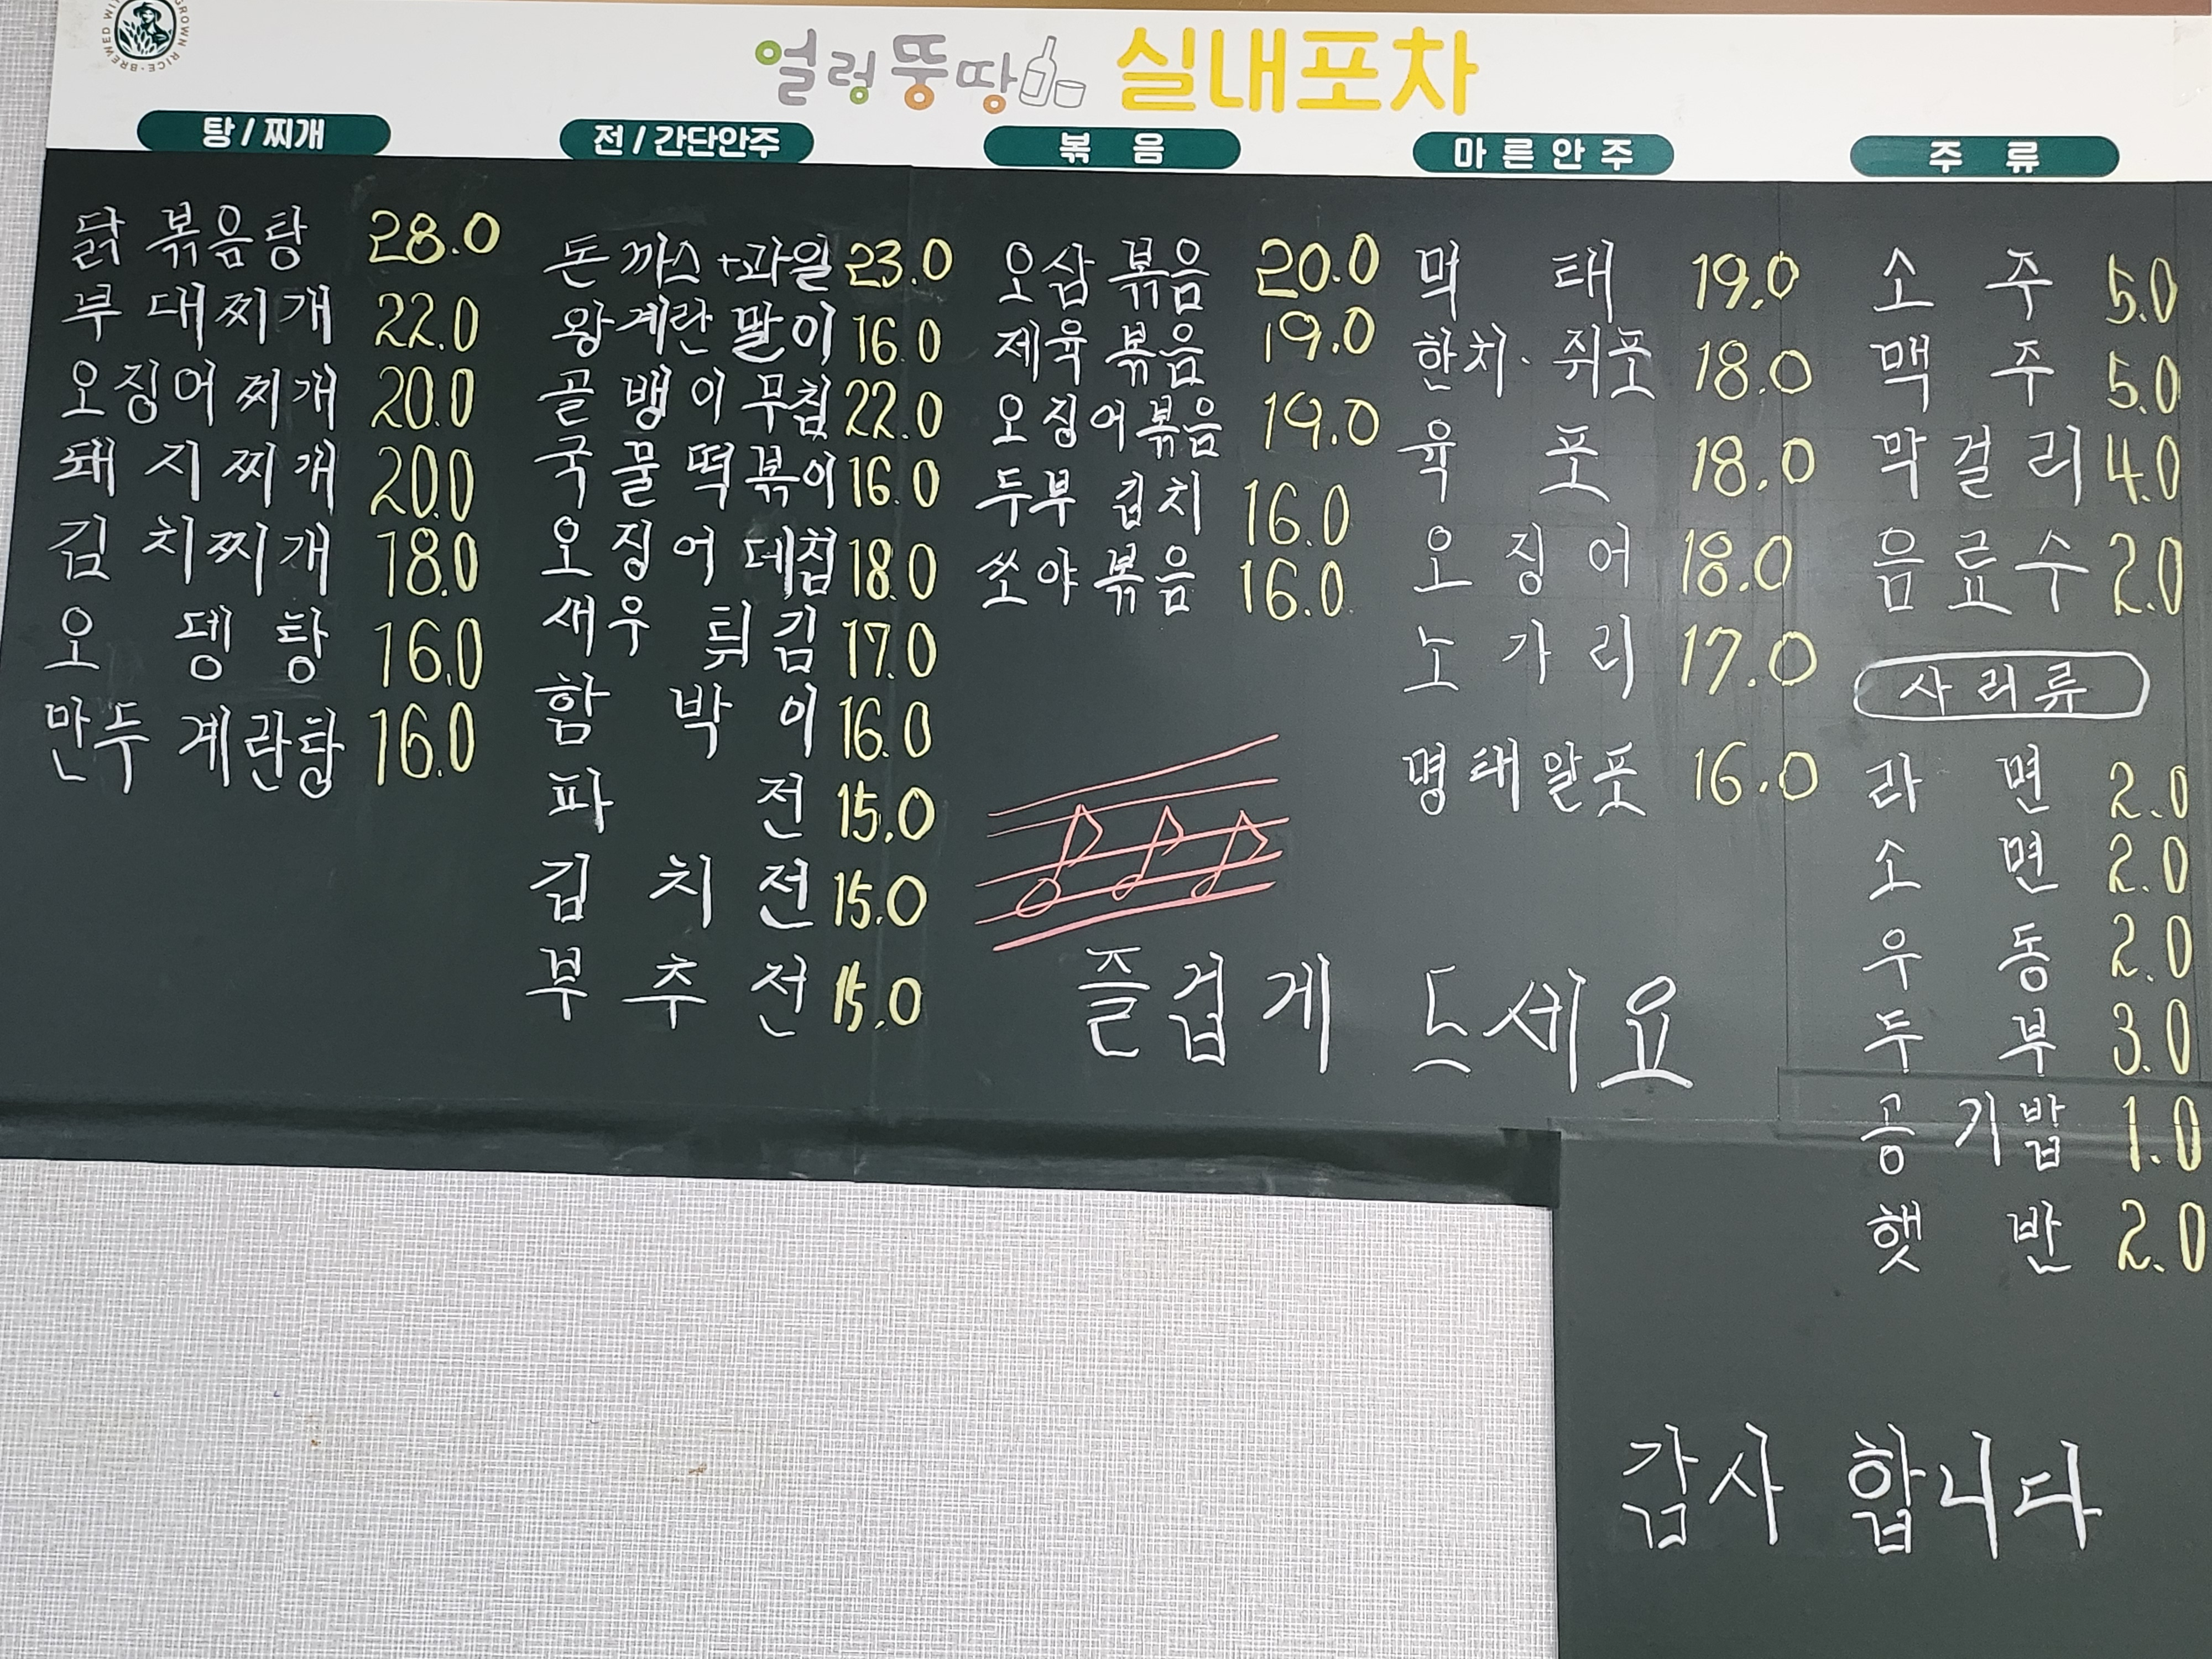 얼렁뚱땅 실내포차
탕/찌개
닭볶음탕 28.0
부대찌개 22.0
오징어찌개 20.0
돼지찌개 20.0
김치찌개 18.0
오뎅탕 16.0
만두계란탕 16.0
전/간단안주
돈까스+과일 23.0
왕계란말이 16.0
골뱅이무침 22.0
국물떡볶이 16.0
오징어데침 18.0
새우튀김 17.0
함박이 16.0
파전 15.0
김치전 15.0
부추전 15.0
볶음
오삼볶음 20.0
제육볶음 19.0
오징어볶음 19.0
두부김치 16.0
쏘야볶음 16.0
마른안주
먹태 19.0
한치·쥐포 18.0
육포 18.0
오징어 18.0
노가리 17.0
명태알포 16.0
즐겁게 드세요
주류
소주 5.0
맥주 5.0
막걸리 4.0
음료수 2.0
사리류
라면 2.0
소면 2.0
우동 2.0
두부 3.0
공기밥 1.0
햇반 2.0
감사합니다